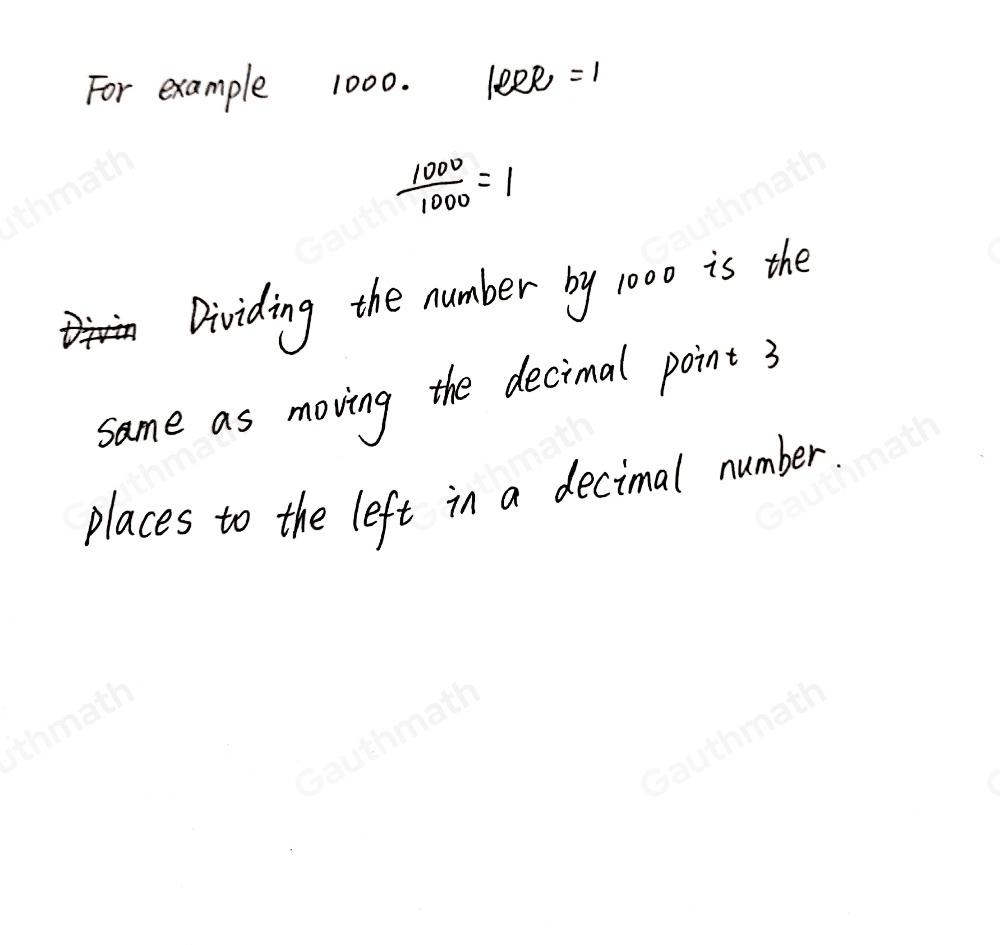 For example 1000. 1000 = 1
1000
1000 = 1
Dividing the number by 1000 is the
same as moving the decimal point 3
places to the left in a decimal number.
Gauthmath